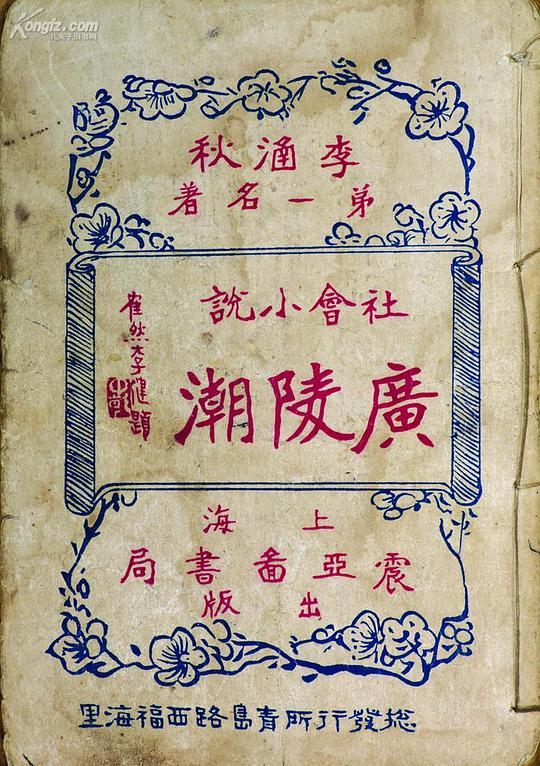 Kongfz.com
孔夫子旧书网
李涵秋
第一名著
社會小說
廣陵潮
崔然李健題
上海
震亞啚書局
出版
総發行所青島路西福海里